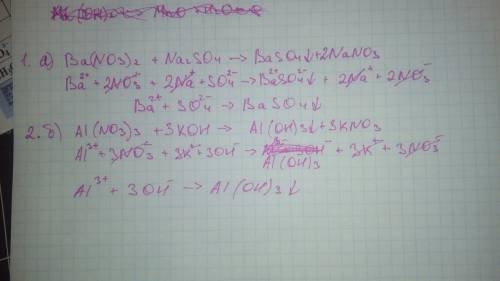 1. а) Ba(NO3)2 + Na2SO4 → BaSO4↓ + 2NaNO3
Ba²⁺ + 2NO3⁻ + 2Na⁺ + SO4²⁻ → Ba²⁺SO4²⁻↓ + 2Na⁺ + 2NO3⁻
Ba²⁺ + SO4²⁻ → BaSO4↓
2. б) Al(NO3)3 + 3KOH → Al(OH)3↓ + 3KNO3
Al³⁺ + 3NO3⁻ + 3K⁺ + 3OH⁻ → Al(OH)3 + 3K⁺ + 3NO3⁻
Al³⁺ + 3OH⁻ → Al(OH)3↓